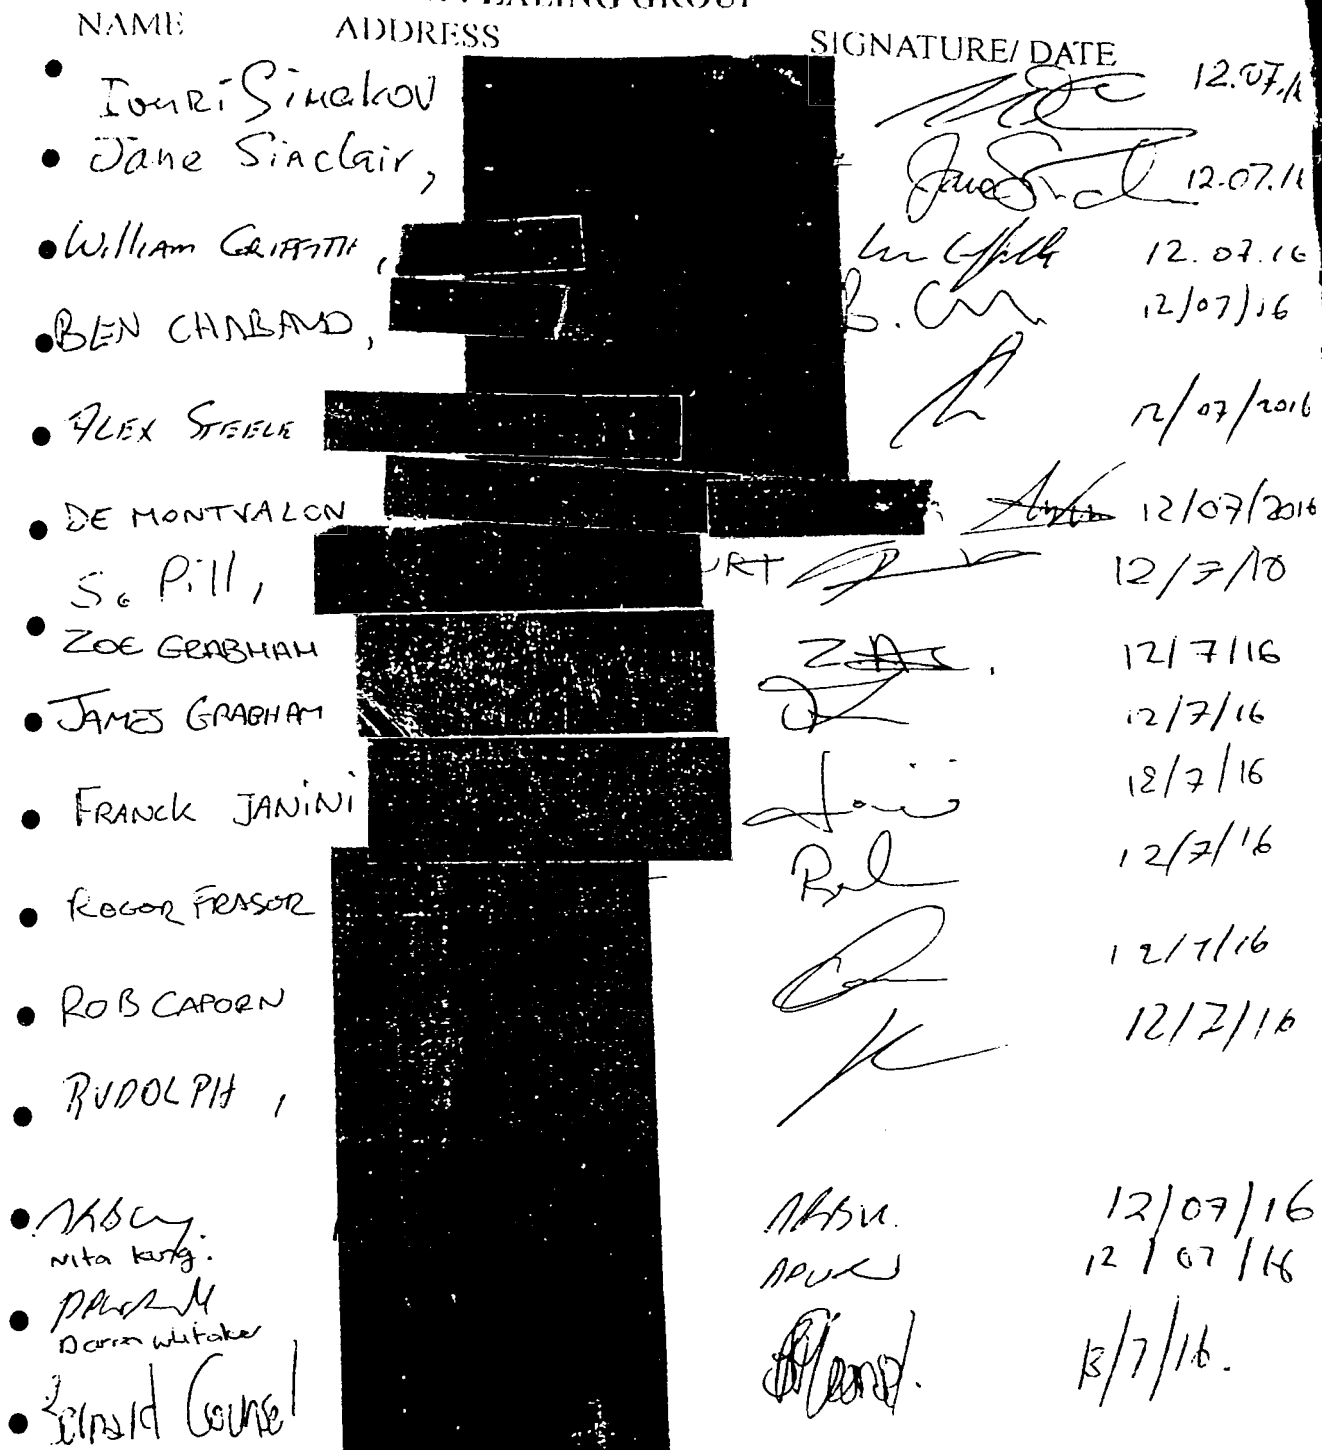 EALING GROUP
NAME ADDRESS SIGNATURE/ DATE
Iouri Simakov 12.07.1
Jane Sinclair, 12.07.1
William GRIFFITH, 12.07.16
BEN CHABAUD, B. 12/07/16
ALEX STEELE 12/07/2016
DE MONTVALON 12/07/2016
S. Pill, URT 12/7/10
ZOE GRABHAM 12/7/16
JAMES GRABHAM 12/7/16
FRANCK JANINI 12/7/16
ROGOR FRASOR 12/7/16
ROB CAPORN 12/7/16
RUDOLPH, 12/7/16
12/07/16
Nita kung. 12/07/16
Darren Whitaker
Counsel 13/7/16.